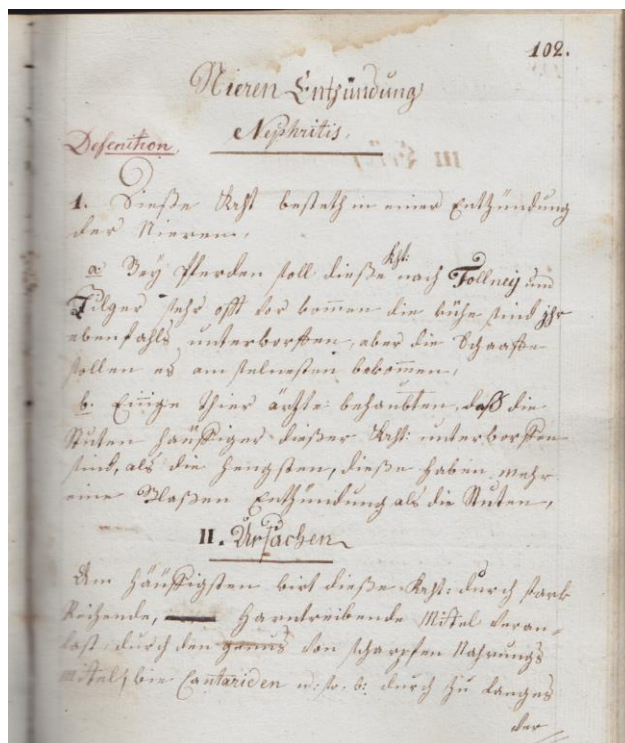 102.
Nieren Entzündung
Nephritis.
Defenition.
1. Dieße Krht besteth in einer Entzündung
der Nieren,
a Bey Pferden soll dieße Kht: nach Tollney und
Pilger sehr offt vor komen die kühe sind jhr
ebenfahls unterworffen, aber die Schaaffe
sollen es am selnesten bekomen,
b. Einige thier ärtzte behaubten, daß die
Stuten häuffiger dießer Krht: unterworffen
sind, als die hengsten, dieße haben mehr
eine Blaßen Entzündung als die Stuten,
II. Ursachen
Am häuffigsten wirt dieße Krht: durch stark
Reitzende, Harntreibende Mittel veran-
last, durch den genus von scharpfen Nahrungs
mittel, wie Cantariden u: s. w: durch zu langes